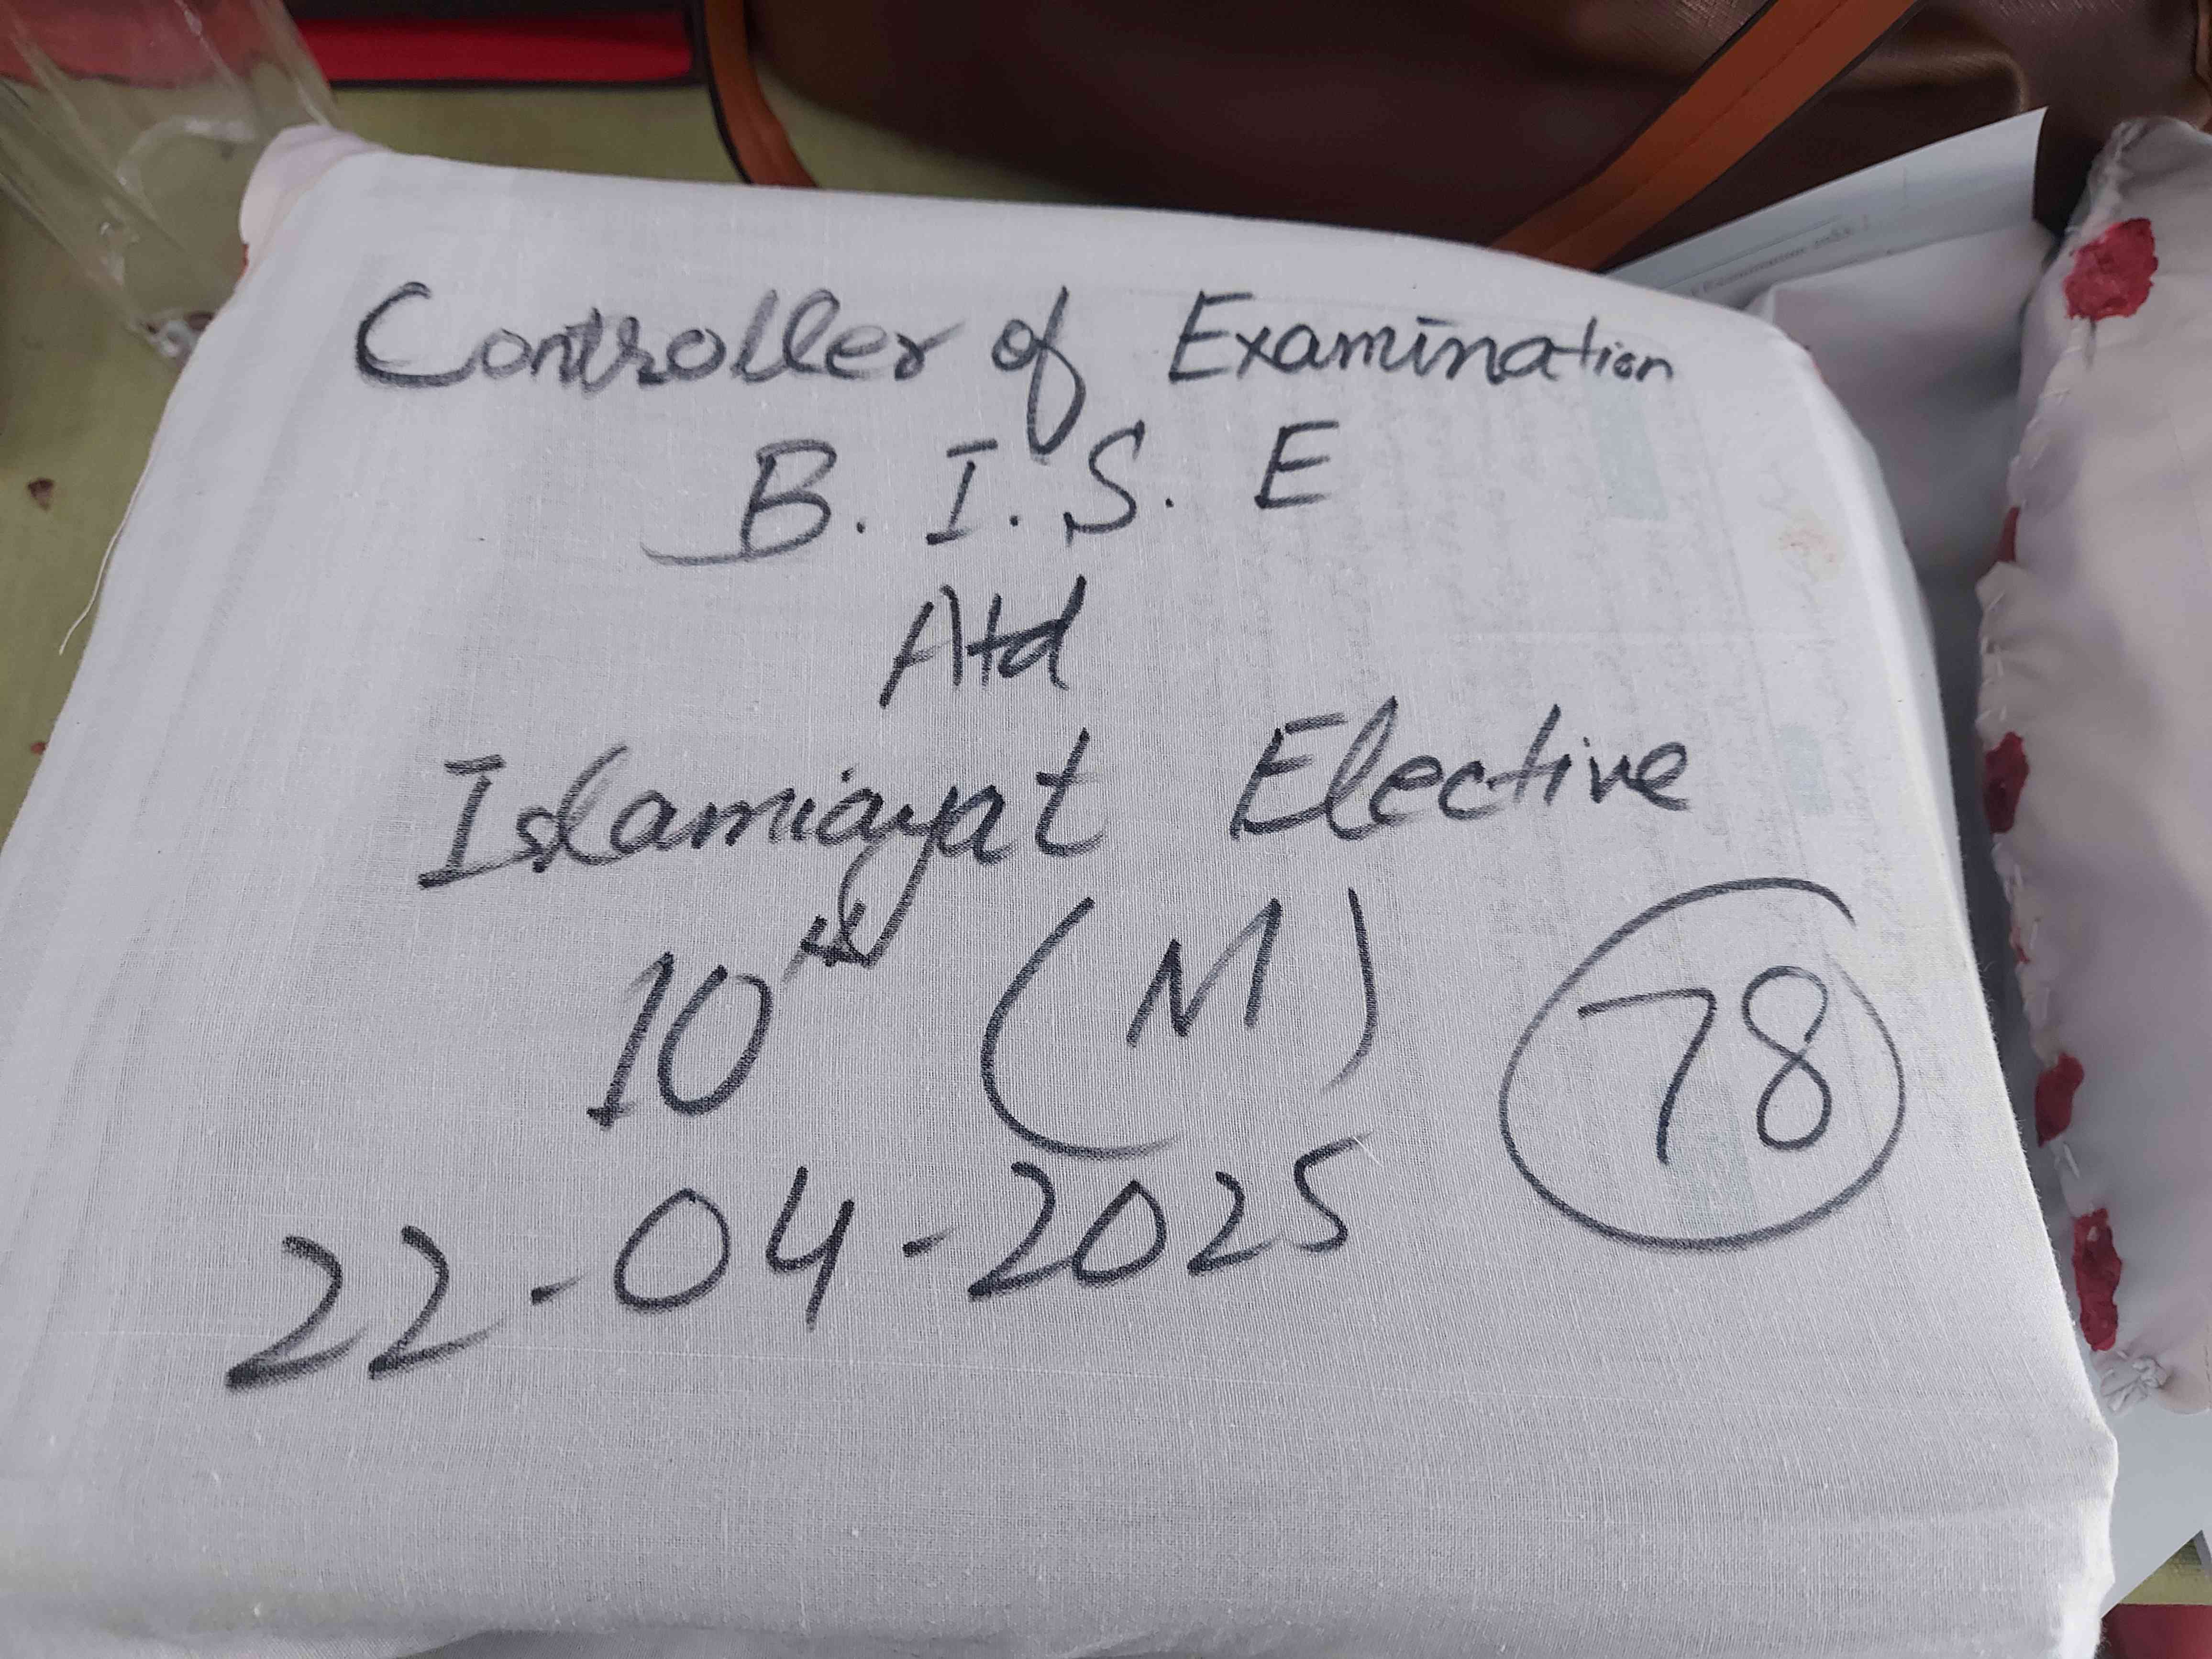 Controller of Examination
B. I. S. E
Atd
Islamiayat Elective
10th (M)
78
22-04-2025